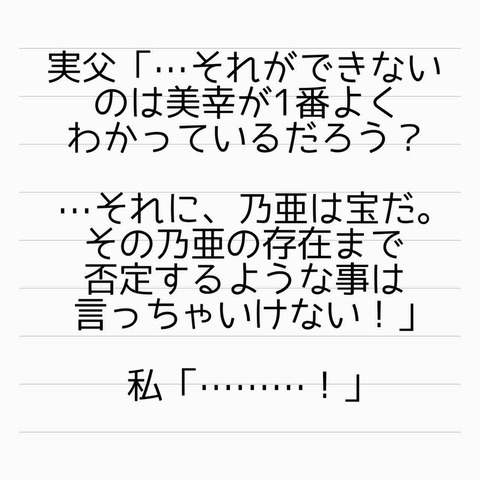 実父「…それができない
のは美幸が1番よく
わかっているだろう？
…それに、乃亜は宝だ。
その乃亜の存在まで
否定するような事は
言っちゃいけない！」
私「………！」